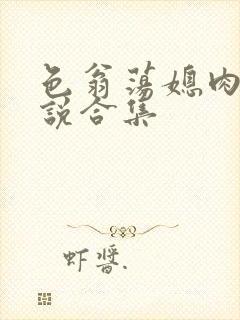 色翁荡媳肉
说合集
虾酱.